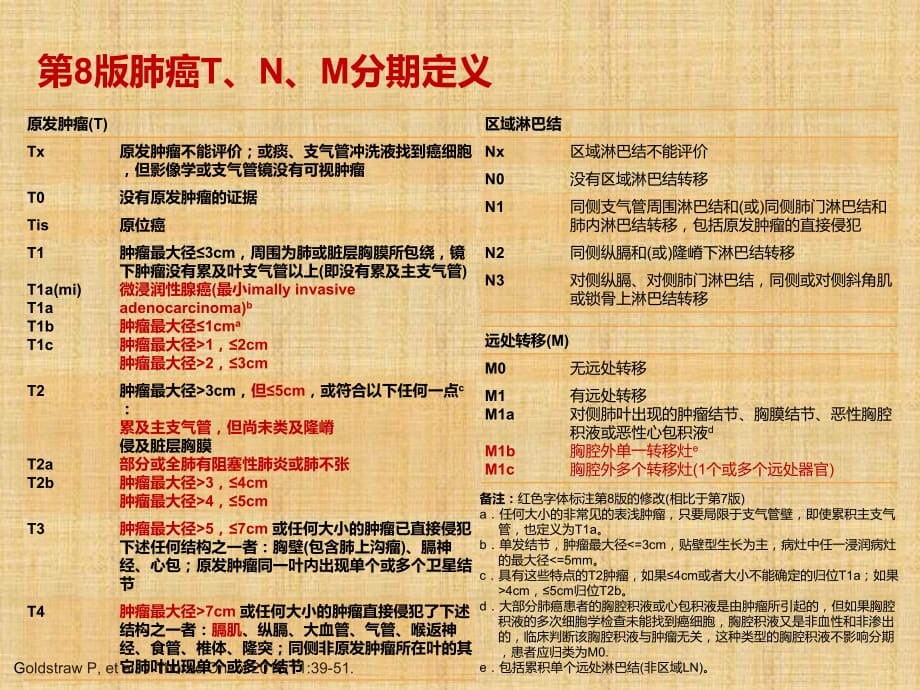 第8版肺癌T、N、M分期定义
原发肿瘤(T)
Tx 原发肿瘤不能评价；或痰、支气管冲洗液找到癌细胞
，但影像学或支气管镜没有可视肿瘤
T0 没有原发肿瘤的证据
Tis 原位癌
T1 肿瘤最大径≤3cm，周围为肺或脏层胸膜所包绕，镜
下肿瘤没有累及叶支气管以上(即没有累及主支气管)
T1a(mi) 微浸润性腺癌(最小imally invasive
T1a adenocarcinoma)b
T1b 肿瘤最大径≤1cma
T1c 肿瘤最大径>1，≤2cm
肿瘤最大径>2，≤3cm
T2 肿瘤最大径>3cm，但≤5cm，或符合以下任何一点c
：
累及主支气管，但尚未类及隆嵴
侵及脏层胸膜
T2a 部分或全肺有阻塞性肺炎或肺不张
T2b 肿瘤最大径>3，≤4cm
肿瘤最大径>4，≤5cm
T3 肿瘤最大径>5，≤7cm 或任何大小的肿瘤已直接侵犯
下述任何结构之一者：胸壁(包含肺上沟瘤)、膈神
经、心包；原发肿瘤同一叶内出现单个或多个卫星结
节
T4 肿瘤最大径>7cm 或任何大小的肿瘤直接侵犯了下述
结构之一者：膈肌、纵隔、大血管、气管、喉返神
经、食管、椎体、隆突；同侧非原发肿瘤所在叶的其
它肺叶出现单个或多个结节
Goldstraw P, et 11:39-51.
区域淋巴结
Nx 区域淋巴结不能评价
N0 没有区域淋巴结转移
N1 同侧支气管周围淋巴结和(或)同侧肺门淋巴结和
肺内淋巴结转移，包括原发肿瘤的直接侵犯
N2 同侧纵隔和(或)隆嵴下淋巴结转移
N3 对侧纵隔、对侧肺门淋巴结，同侧或对侧斜角肌
或锁骨上淋巴结转移
远处转移(M)
M0 无远处转移
M1 有远处转移
M1a 对侧肺叶出现的肿瘤结节、胸膜结节、恶性胸腔
积液或恶性心包积液d
M1b 胸腔外单一转移灶e
M1c 胸腔外多个转移灶(1个或多个远处器官)
备注：红色字体标注第8版的修改(相比于第7版)
a．任何大小的非常见的表浅肿瘤，只要局限于支气管壁，即使累积主支气
管，也定义为T1a。
b．单发结节，肿瘤最大径<=3cm，贴壁型生长为主，病灶中任一浸润病灶
的最大径<=5mm。
c．具有这些特点的T2肿瘤，如果≤4cm或者大小不能确定的归位T1a；如果
>4cm，≤5cm归位T2b。
d．大部分肺癌患者的胸腔积液或心包积液是由肿瘤所引起的，但如果胸腔
积液的多次细胞学检查未能找到癌细胞，胸腔积液又是非血性和非渗出
的，临床判断该胸腔积液与肿瘤无关，这种类型的胸腔积液不影响分期
，患者应归类为M0.
e．包括累积单个远处淋巴结(非区域LN)。